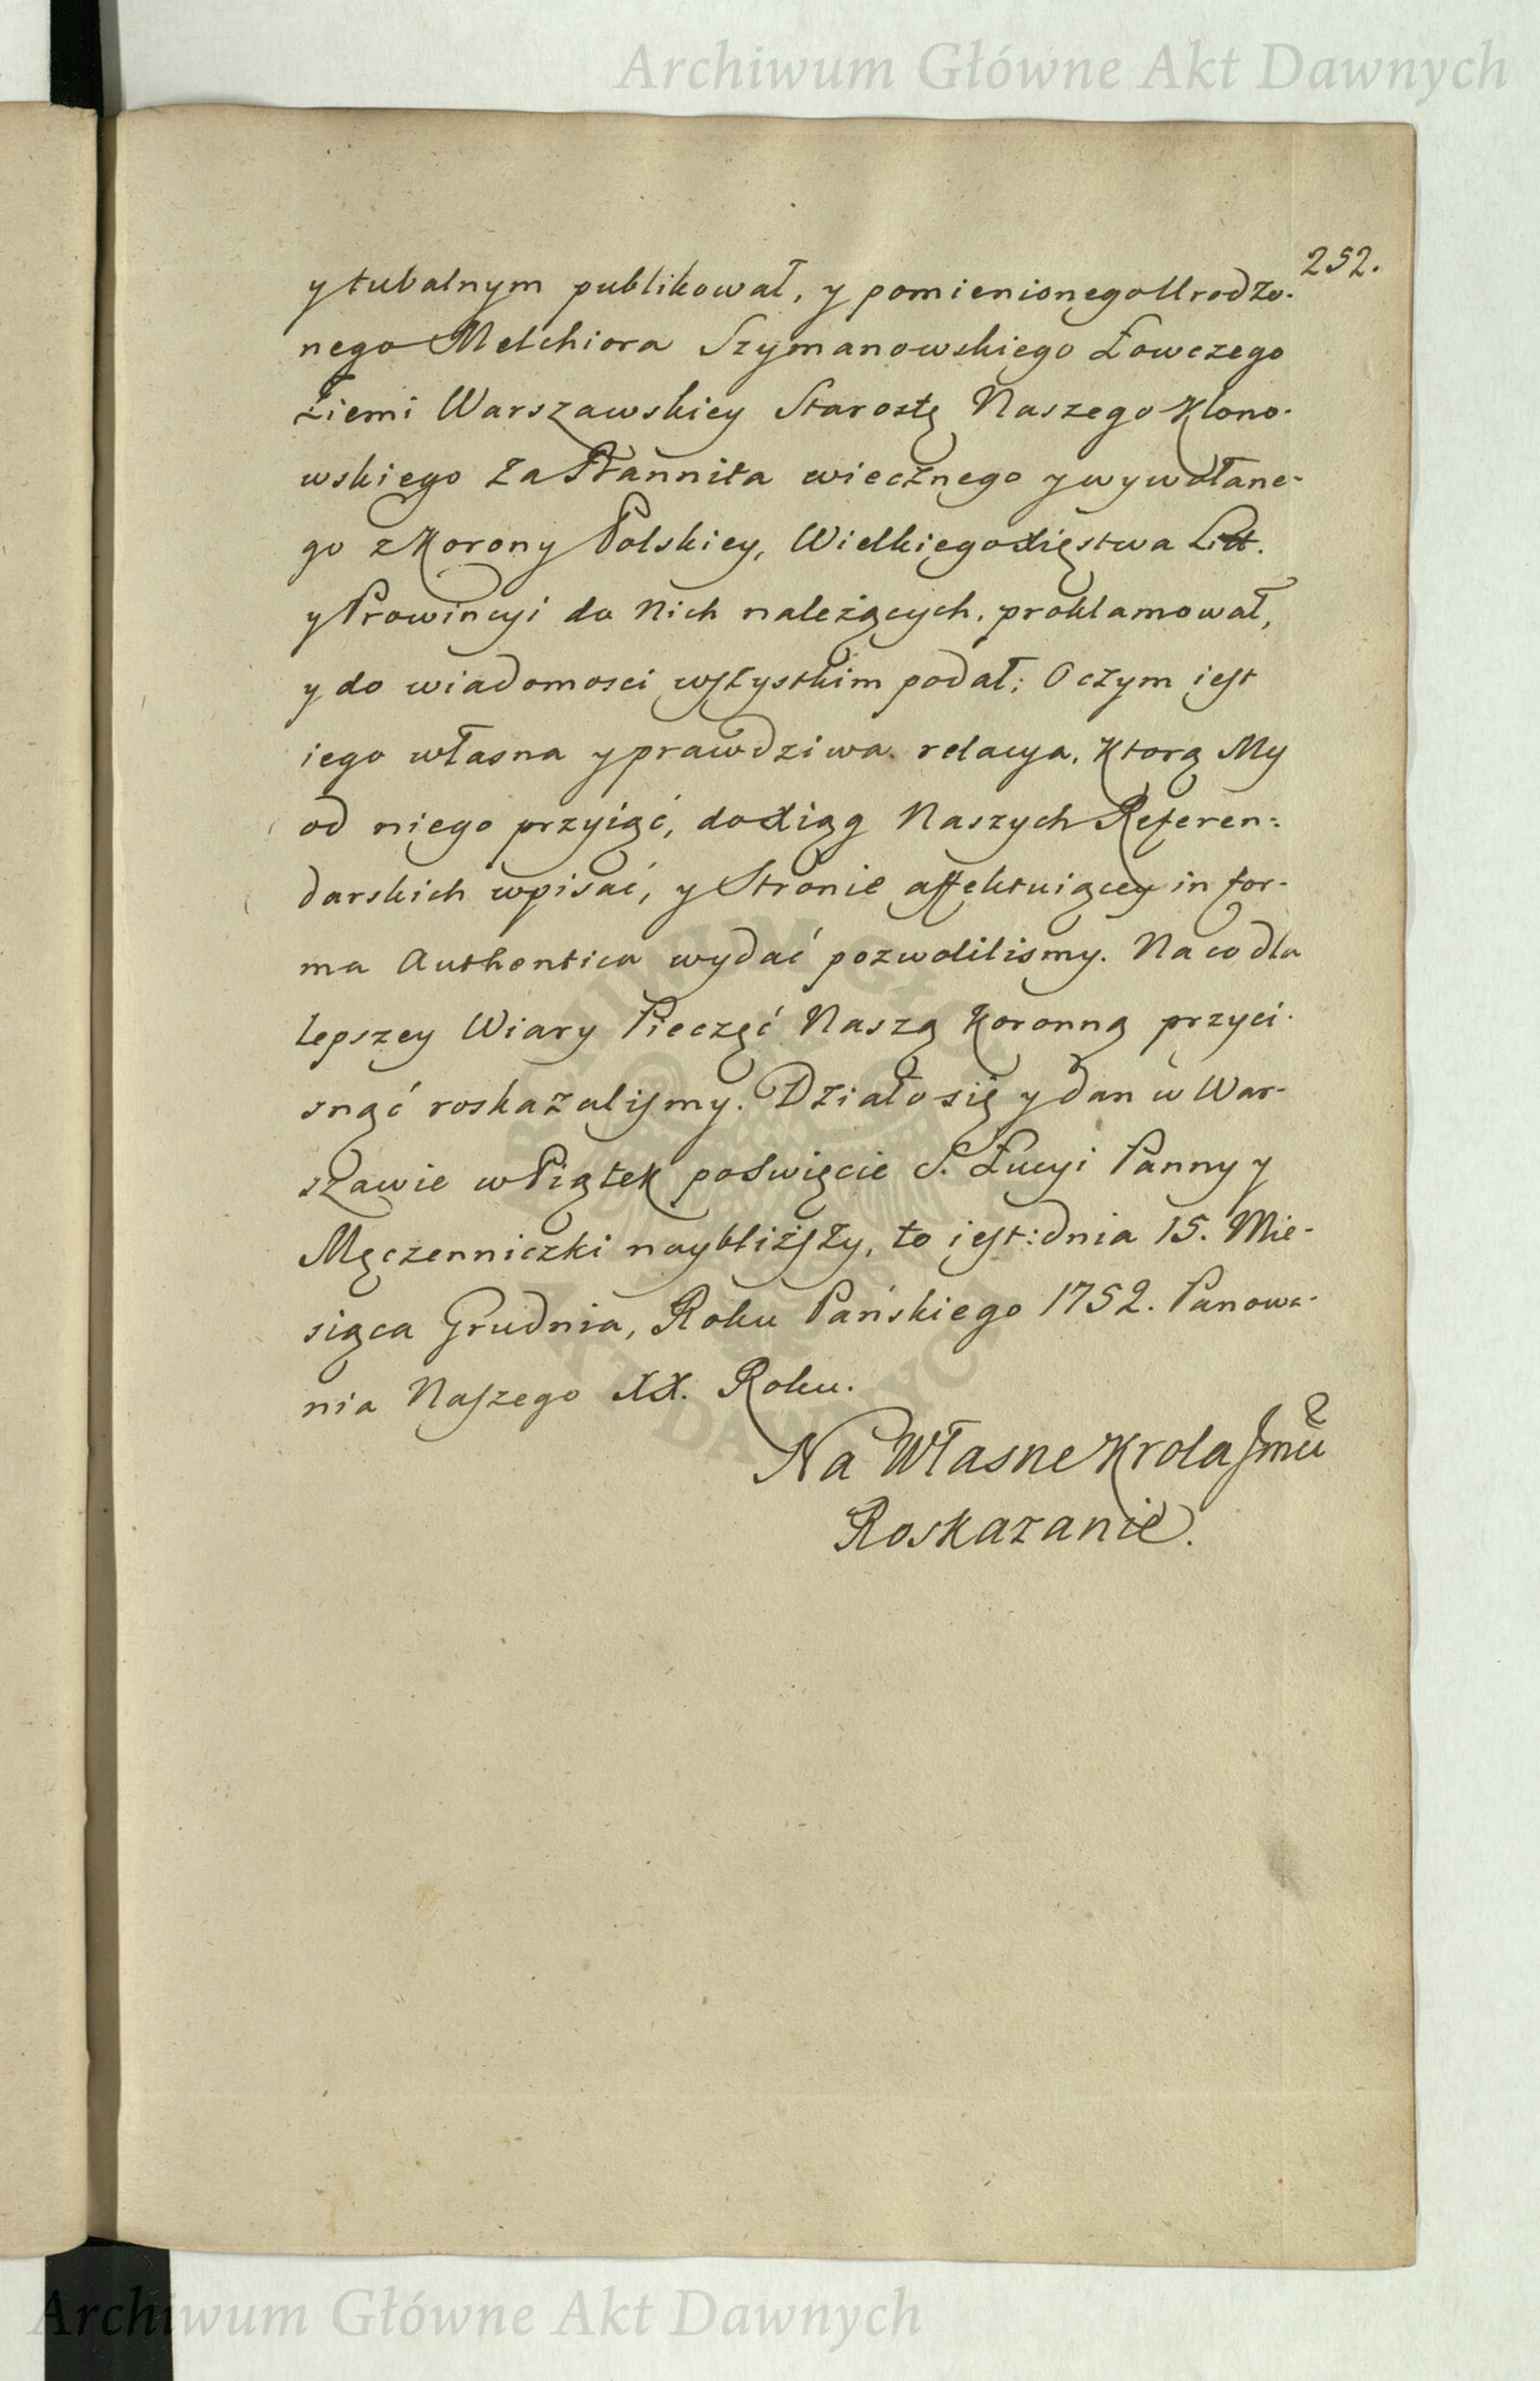 Archiwum Główne Akt Dawnych
252.
y tubalnym publikował, y pomienionego Urodzo-
nego Melchiora Szymanowskiego Łowczego
Ziemi Warszawskiey Starostę Naszego Klono-
wskiego Za Bannita wiecznego y wywołane-
go z Korony Polskiey, Wielkiego Xięstwa Litt.
y Prowincyi do Nich należących, proklamował,
y do wiadomosci wszystkim podał; O czym iest
iego własna y prawdziwa relacya, Ktorą My
od niego przyiąć, do Xiąg Naszych Referen=
darskich wpisać, y Stronie affektuiącey in for-
ma Authentica wydać pozwolilismy. Na co dla
lepszey Wiary Pieczęć Naszą Koronną przyci-
snąć roskazalismy. Działo się y dan w War-
szawie w Piątek po Swięcie S. Łucyi Panny y
Męczenniczki naybliższy, to iest: dnia 15. Mie-
siąca Grudnia, Roku Pańskiego 1752. Panowa-
nia Naszego XX. Roku.
Na Własne Krola Jmci
Roskazanie.
ARCHIWUM GŁÓWNE
AKT DAWNYCH
Archiwum Główne Akt Dawnych